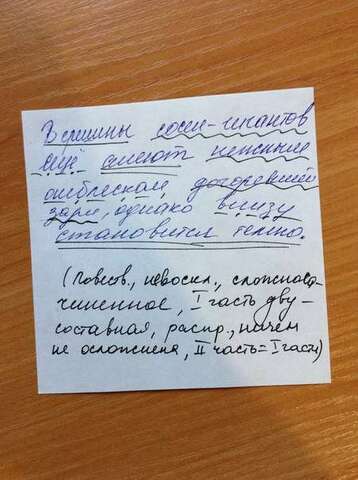 Вершины сосен-гигантов
ещё алеют нежным
отблеском догоревшей
зари, однако внизу
становится темно.
(Повеств., невоскл., сложносо-
чиненное, I часть дву-
составная, распр., ничем
не осложнена, II часть = I части)